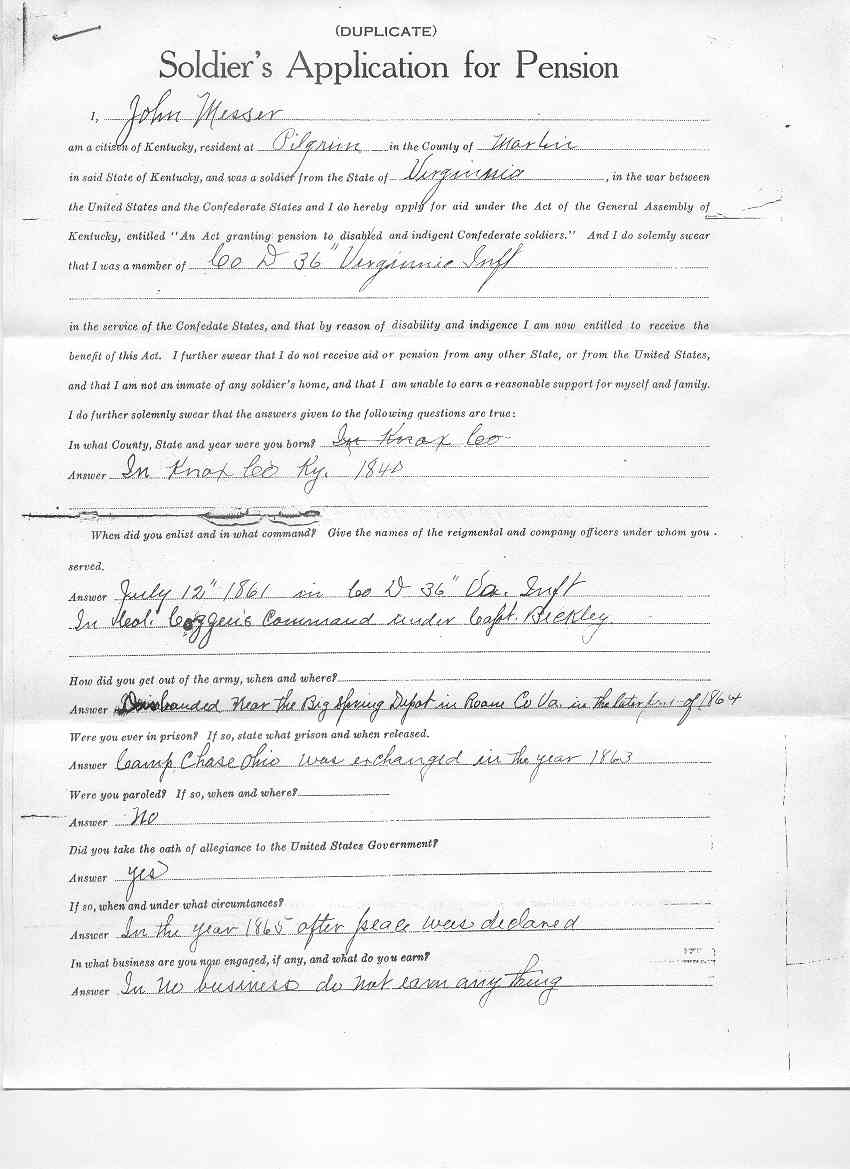 (DUPLICATE)
Soldier's Application for Pension
I, John Messer
am a citisen of Kentucky, resident at Pilgrim in the County of Martin
in said State of Kentucky, and was a soldier from the State of Virginnia, in the war between
the United States and the Confederate States and I do hereby apply for aid under the Act of the General Assembly of
Kentucky, entitled "An Act granting pension to disabled and indigent Confederate soldiers." And I do solemly swear
that I was a member of Co D 36" Virginnia Inft
in the service of the Confedate States, and that by reason of disability and indigence I am now entitled to receive the
benefit of this Act. I further swear that I do not receive aid or pension from any other State, or from the United States,
and that I am not an inmate of any soldier's home, and that I am unable to earn a reasonable support for myself and family.
I do further solemnly swear that the answers given to the following questions are true:
In what County, State and year were you born? In Knox Co
Answer In Knox Co Ky. 1840
When did you enlist and in what command? Give the names of the reigmental and company officers under whom you
served.
Answer July 12" 1861 in Co D 36" Va. Inft
In Col. Command under Capt. Beckley
How did you get out of the army, when and where?
Answer Disbanded Near the Big Spring Depot in Roane Co Va. in the later part of 1864
Were you ever in prison? If so, state what prison and when released.
Answer Camp Chase Ohio was exchanged in the year 1863
Were you paroled? If so, when and where?
Answer No
Did you take the oath of allegiance to the United States Government?
Answer yes
If so, when and under what circumtances?
Answer In the year 1865 after peace was declared
In what business are you now engaged, if any, and what do you earn?
Answer In No business do not earn any thing